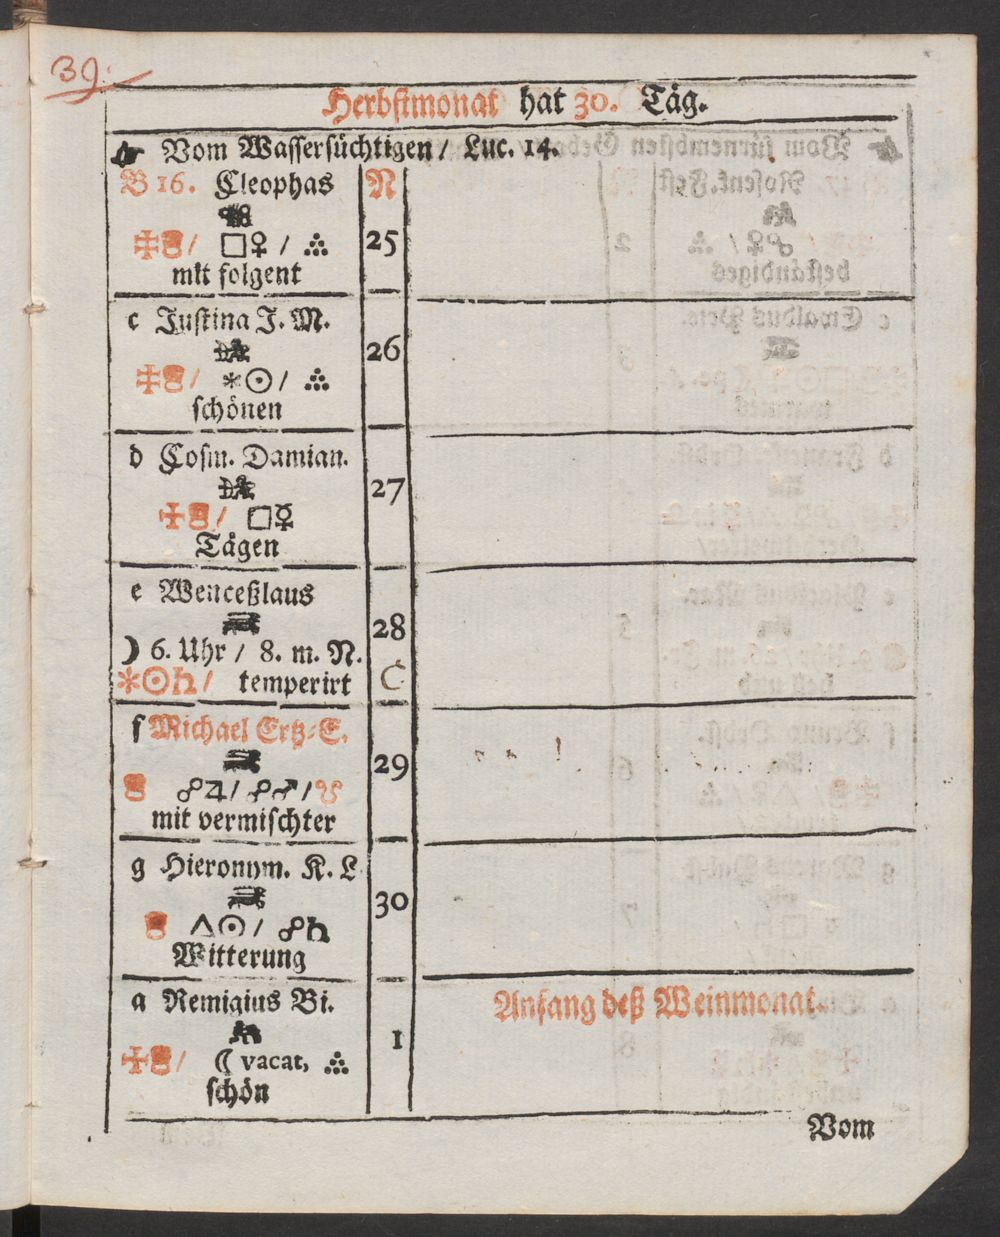 39.
Herbstmonat hat 30. Täg.
☛ Vom Wassersüchtigen / Luc. 14.
B 16. Cleophas N
□♀ / ∴ 25
mit folgent
c Justina J. M.
26
/ *☉ / ∴
schönen
d Cosm. Damian.
27
/ □☿
Tägen
e Wenceßlaus
28
☽ 6. Uhr / 8. m. N.
*☉♄ / temperirt C
f Michael Ertz-E.
29
☍♃ / ☍♂ / ☋
mit vermischter
g Hieronym. K. L
30
△☉ / ☍♄
Witterung
a Remigius Bi. Anfang deß Weinmonat.
1
/ ☾ vacat, ∴
schön
Vom